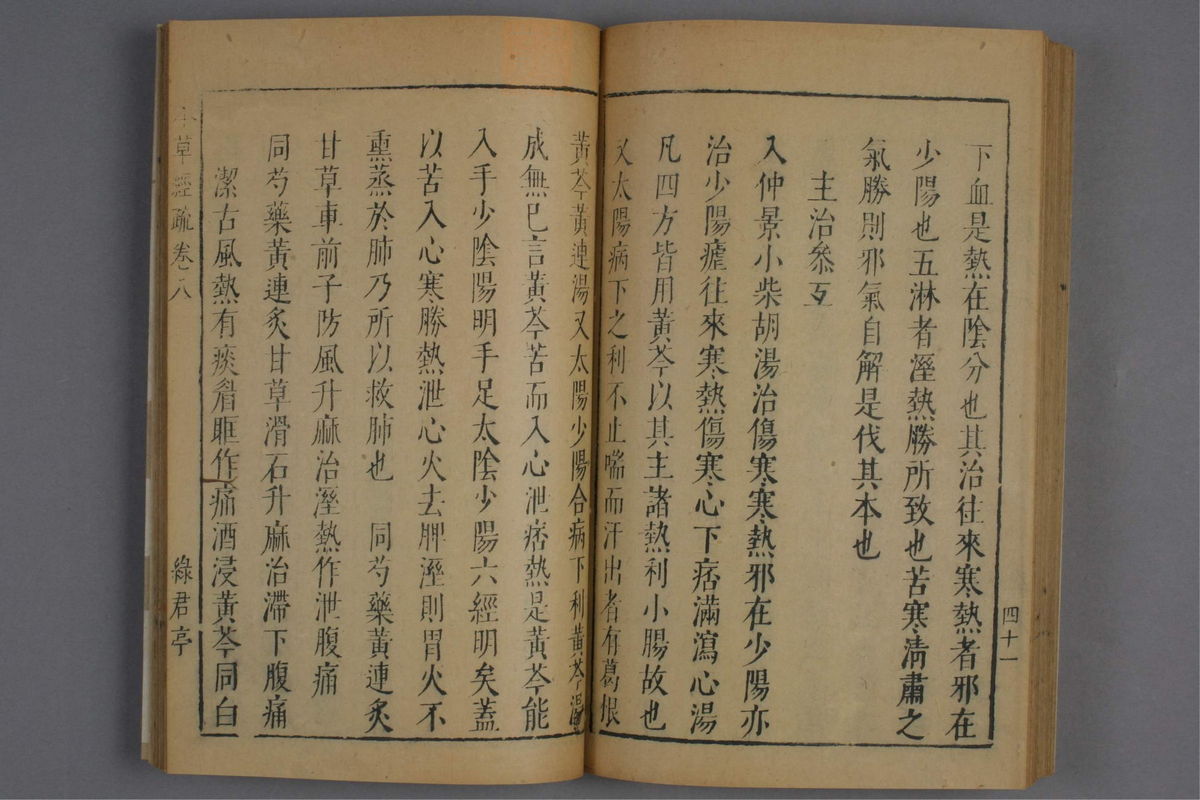 四十一
下血是熱在陰分也其治往來寒熱者邪在
少陽也五淋者溼熱勝所致也苦寒清肅之
氣勝則邪氣自解是伐其本也
主治叅互
入仲景小柴胡湯治傷寒寒熱邪在少陽亦
治少陽瘧往來寒熱傷寒心下痞滿瀉心湯
凡四方皆用黃芩以其主諸熱利小腸故也
又太陽病下之利不止喘而汗出者有葛根
黃芩黃連湯又太陽少陽合病下利黃芩湯
成無巳言黃芩苦而入心泄痞熱是黃芩能
入手少陰陽明手足太陰少陽六經明矣蓋
以苦入心寒勝熱泄心火去脾溼則胃火不
熏蒸於肺乃所以救肺也 同芍藥黃連炙
甘草車前子防風升麻治溼熱作泄腹痛
同芍藥黃連炙甘草滑石升麻治滯下腹痛
潔古風熱有痰眉眶作痛酒浸黃芩同白
本草經疏 卷之八 綠君亭